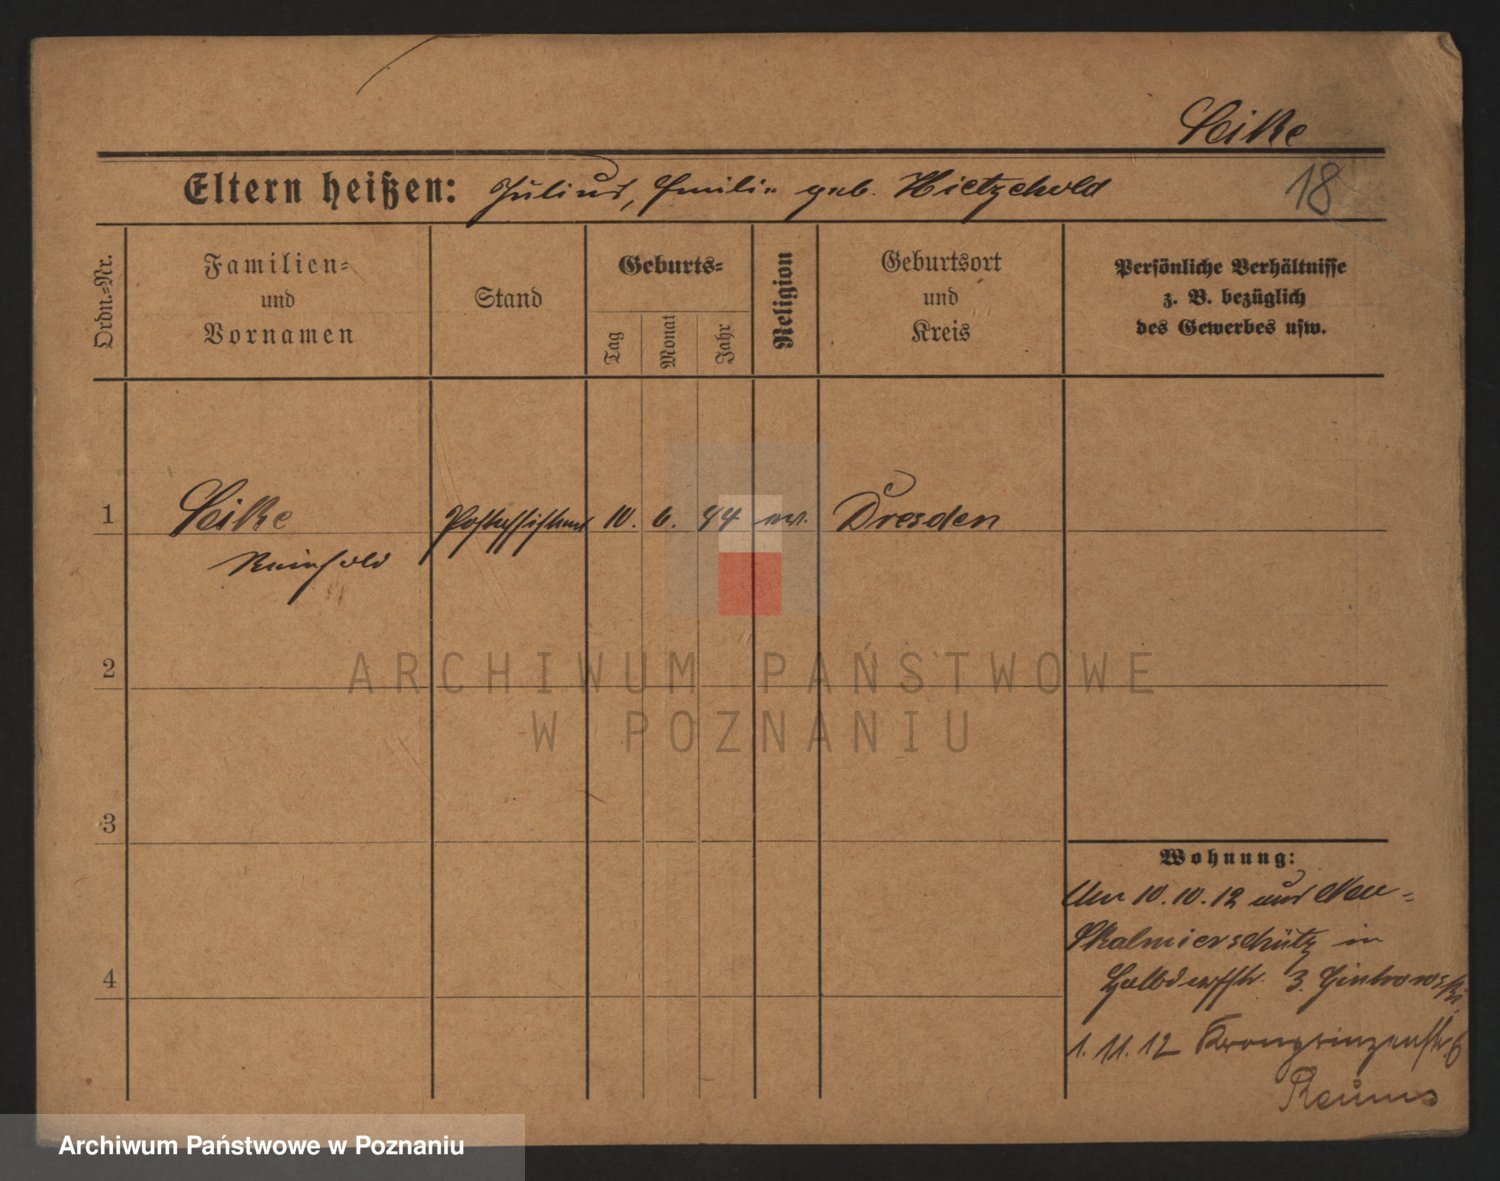 Leike
Eltern heißen: Julius, Emilie geb. Hietzchold
18
Ordn.-Nr.
Familien-
und
Vornamen
Stand
Geburts-
Tag
Monat
Jahr
Religion
Geburtsort
und
Kreis
Persönliche Verhältnisse
z. B. bezüglich
des Gewerbes usw.
1 Leike Postassistent 10. 6. 44 ev. Dresden
Reinhold
2
ARCHIWUM PAŃSTWOWE
W POZNANIU
3
Wohnung:
10.10.12 aus Neu-
Skalmierschütz in
Halbdorfstr. 3.
4
1.11.12 Kronprinzenstr. 6
Archiwum Państwowe w Poznaniu